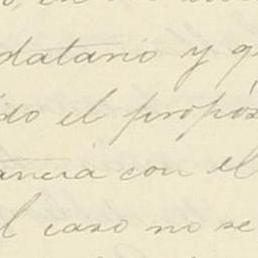 datario y q
do el propós
ancia con el
l caso no se